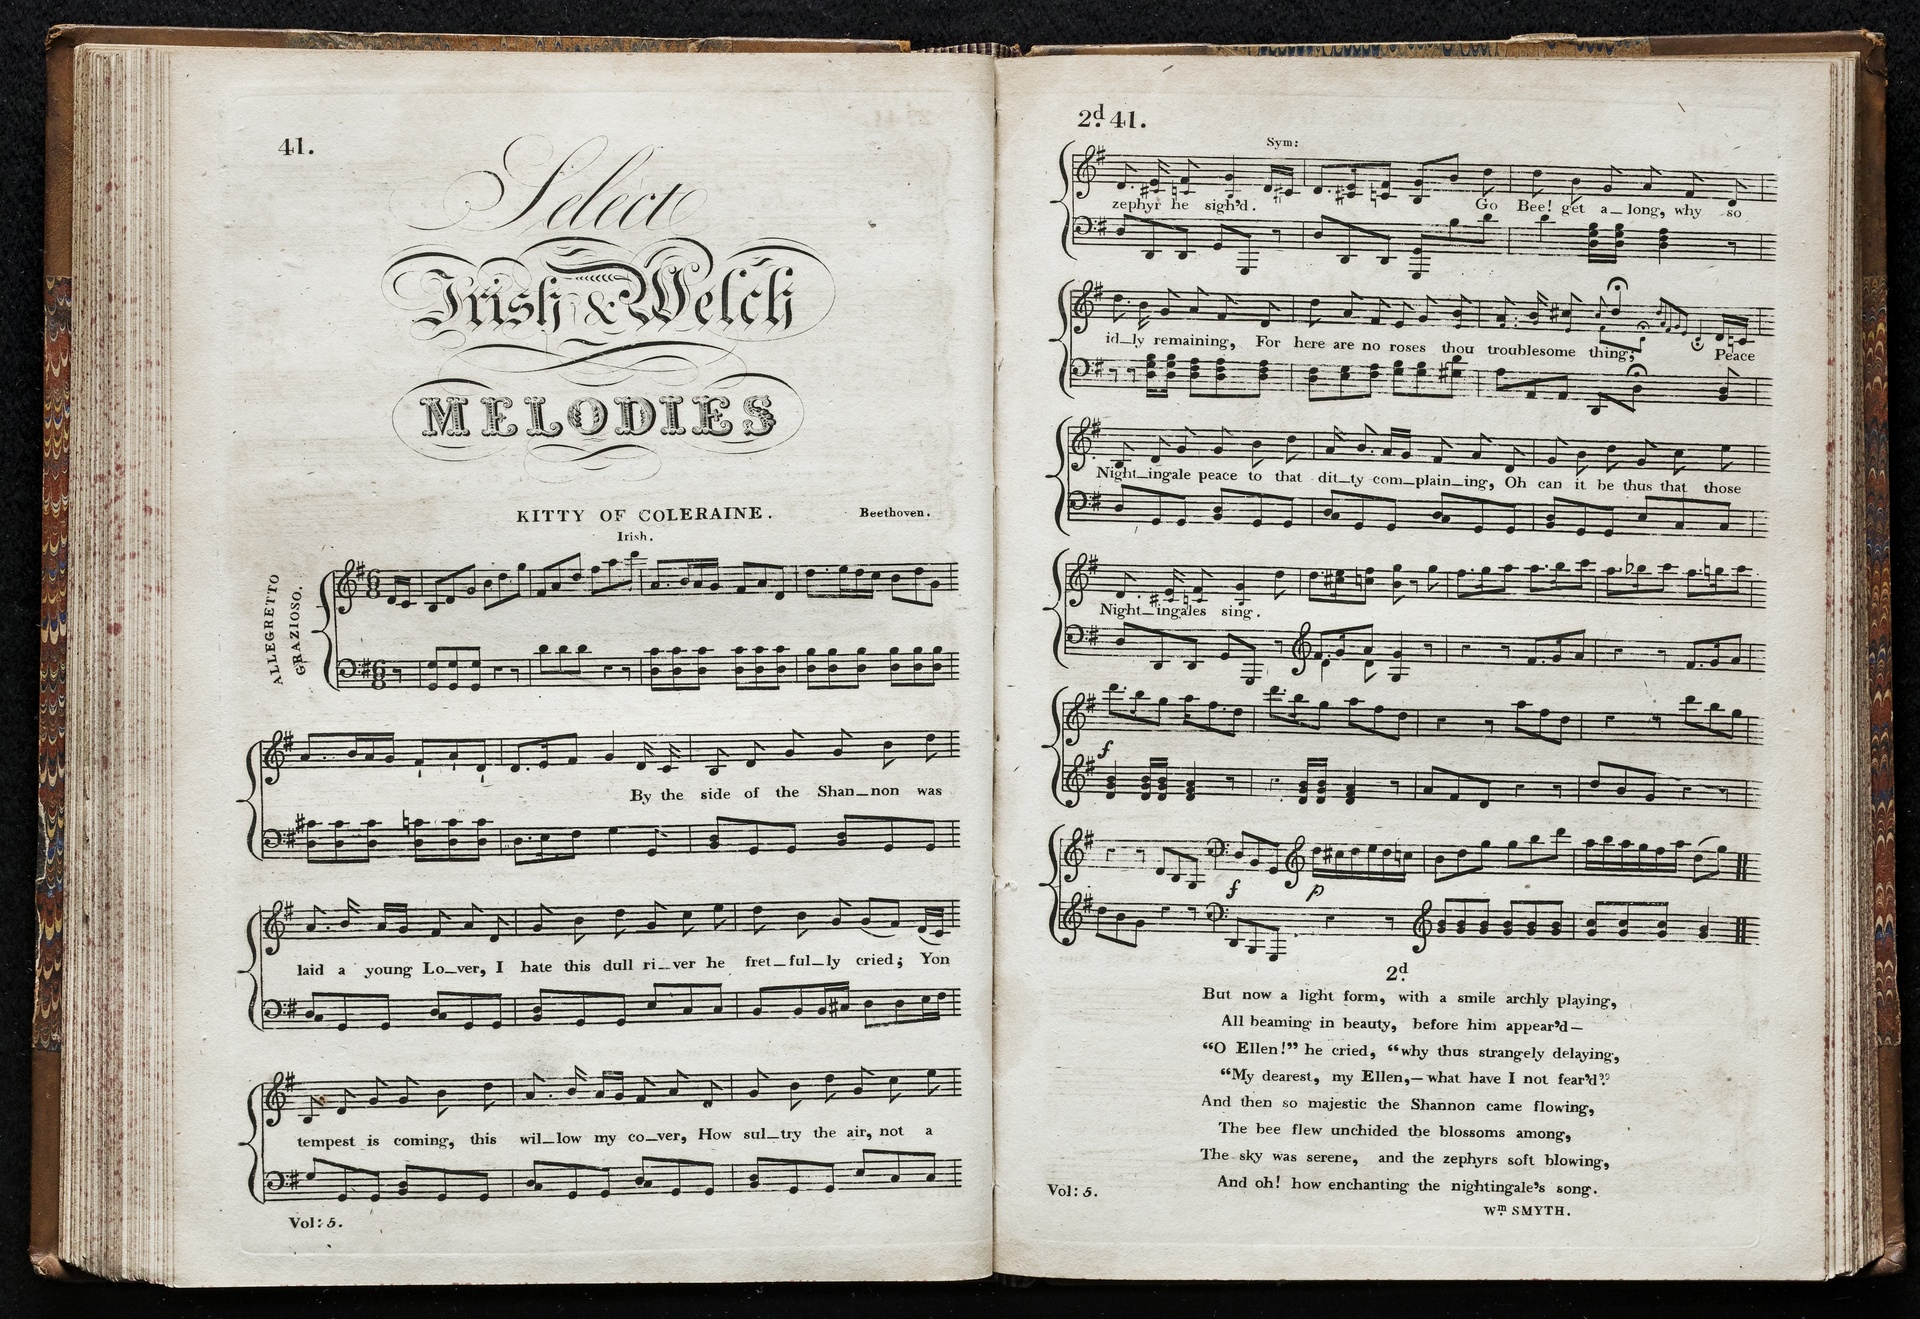 41.
Select
Irish & Welch
MELODIES
KITTY OF COLERAINE.
Beethoven.
Irish.
ALLEGRETTO
GRAZIOSO.
By the side of the Shan_non was
laid a young Lo_ver, I hate this dull ri_ver he fret_ful_ly cried; Yon
tempest is coming, this wil_low my co_ver, How sul_try the air, not a
Vol: 5.
2d. 41.
Sym:
zephyr he sigh'd. Go Bee! get a_long, why so
id_ly remaining, For here are no roses thou troublesome thing; Peace
Night_ingale peace to that dit_ty com_plain_ing, Oh can it be thus that those
Night_ingales sing.
f
f p
2d.
But now a light form, with a smile archly playing,
All beaming in beauty, before him appear'd—
“O Ellen!” he cried, “why thus strangely delaying,
“My dearest, my Ellen,—what have I not fear'd?”
And then so majestic the Shannon came flowing,
The bee flew unchided the blossoms among,
The sky was serene, and the zephyrs soft blowing,
And oh! how enchanting the nightingale's song.
Wm. SMYTH.
Vol: 5.